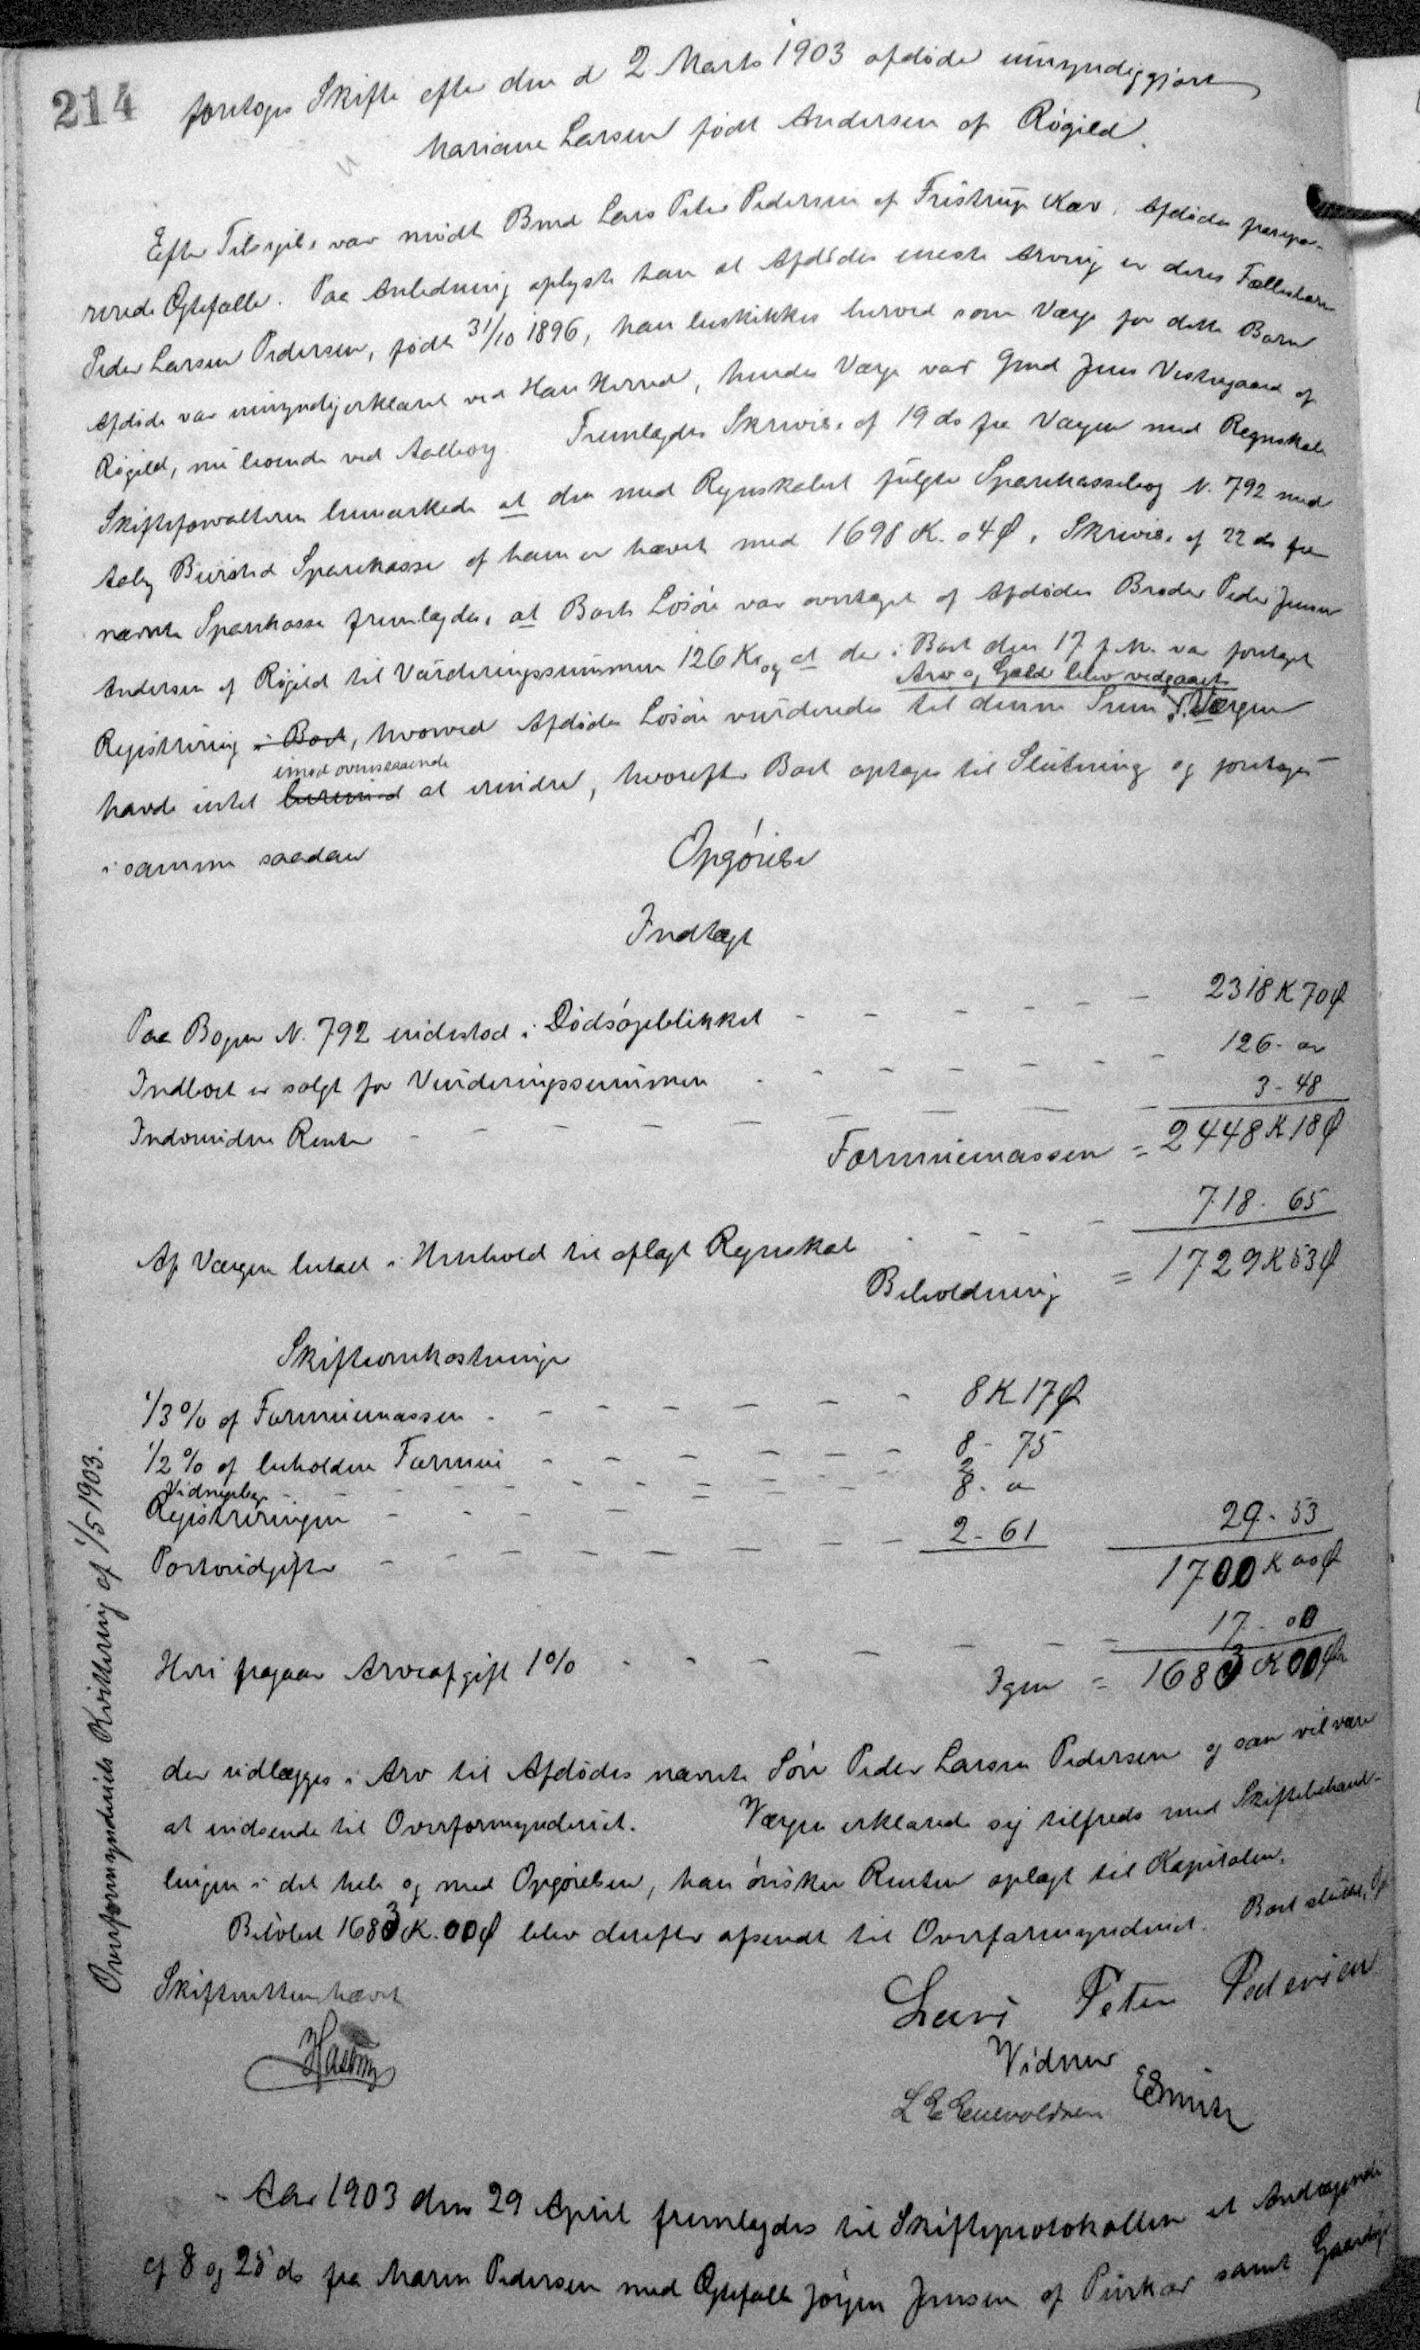 214
foretoges Skifte efter den d 2 Marts 1903 afdøde umyndiggjort
Mariane Larsen født Andersen af Røgild.
Efter Tilsigelse var mødt Bmd Lars Peter Pedersen af Fristrup Kær, Afdødes
Ægtefælle. Paa Anledning oplyste han at Afdødes eneste Arving er deres Fællesbarn
Peder Larsen Pedersen, født 31/10 1896, han beskikkes herved som Værge for dette Barn
Afdøde var umyndigerklæret ved Han Herred, hendes Værge var Gmd Jens Vestergaard af
Røgild, nu boende ved Aalborg. Fremlagdes Skrivelse af 19 ds fra Værgen med Regnskab
Skifteforvalteren bemærkede at den med Regnskabet fulgte Sparekassebog N. 792 med
Aaby Biersted Sparekasse af ham er hævet med 1698 K. 04 Ø, Skrivelse af 22 ds fra
nævnte Sparekasse fremlagdes, at Boets Løsøre var overtaget af Afdødes Broder Peder Jensen
Andersen af Røgild til Vurderingssummen 126 Kr og at der i Boet den 17 f.M. var foretaget
Arv og Gæld blev vedgaaet
Registrering i Boet, hvorved Afdødes Løsøre vurderedes til denne Sum. Værgen
imod ovenstaaende
havde intet herimod at erindre, hvorefter Boet optoges til Slutning og foretoges
i samme saadan
Opgørelse
Indtægt
Paa Bogen N. 792 indestod i Dødsøjeblikket - - - - - - 2318 K 70 Ø
Indboet er solgt for Vurderingssummen - - - - - - - 126 - 00
Indvundne Renter - - - - - - - 3 - 48
Formuemassen = 2448 K 18 Ø
Af Værgen betalt i Henhold til aflagt Regnskab - - - 718 - 65
Beholdning = 1729 K 53 Ø
Skifteomkostninger
1/3 % af Formuemassen - - - - - - 8 K 17 Ø
1/2 % af beholden Formue - - - - - - 8 - 75
Vidnegebyr - - - - - - 2
Registreringen - - - - - - 8 - 00
Portoudgifter - - - - - - 2 - 61 29 - 53
1700 K 00 Ø
Heri fragaar Arveafgift 1% - - - - - - 17 - 00
Igen = 1683 K 00 Ø
der udlægges i Arv til Afdødes nævnte Søn Peder Larsen Pedersen og som vil være
at indsende til Overformynderiet. Værgen erklærede sig tilfreds med Skiftebehand-
lingen i det hele og med Opgørelsen, han ønsker Renten oplagt til Kapitalen.
Beløbet 1683 K. 00 Ø blev derefter afsendt til Overformynderiet. Boet sluttet,
Skifteretten hævet
Lars Peter Pedersen
Vidner
L E Enevoldsen ESmith
Overformynderiets Kvittering af 1/5 1903.
Aar 1903 den 29 April fremlagdes til Skifteprotokollen et Andragende
af 8 og 25 ds fra Maren Pedersen med Ægtefælle Jørgen Jensen af samt